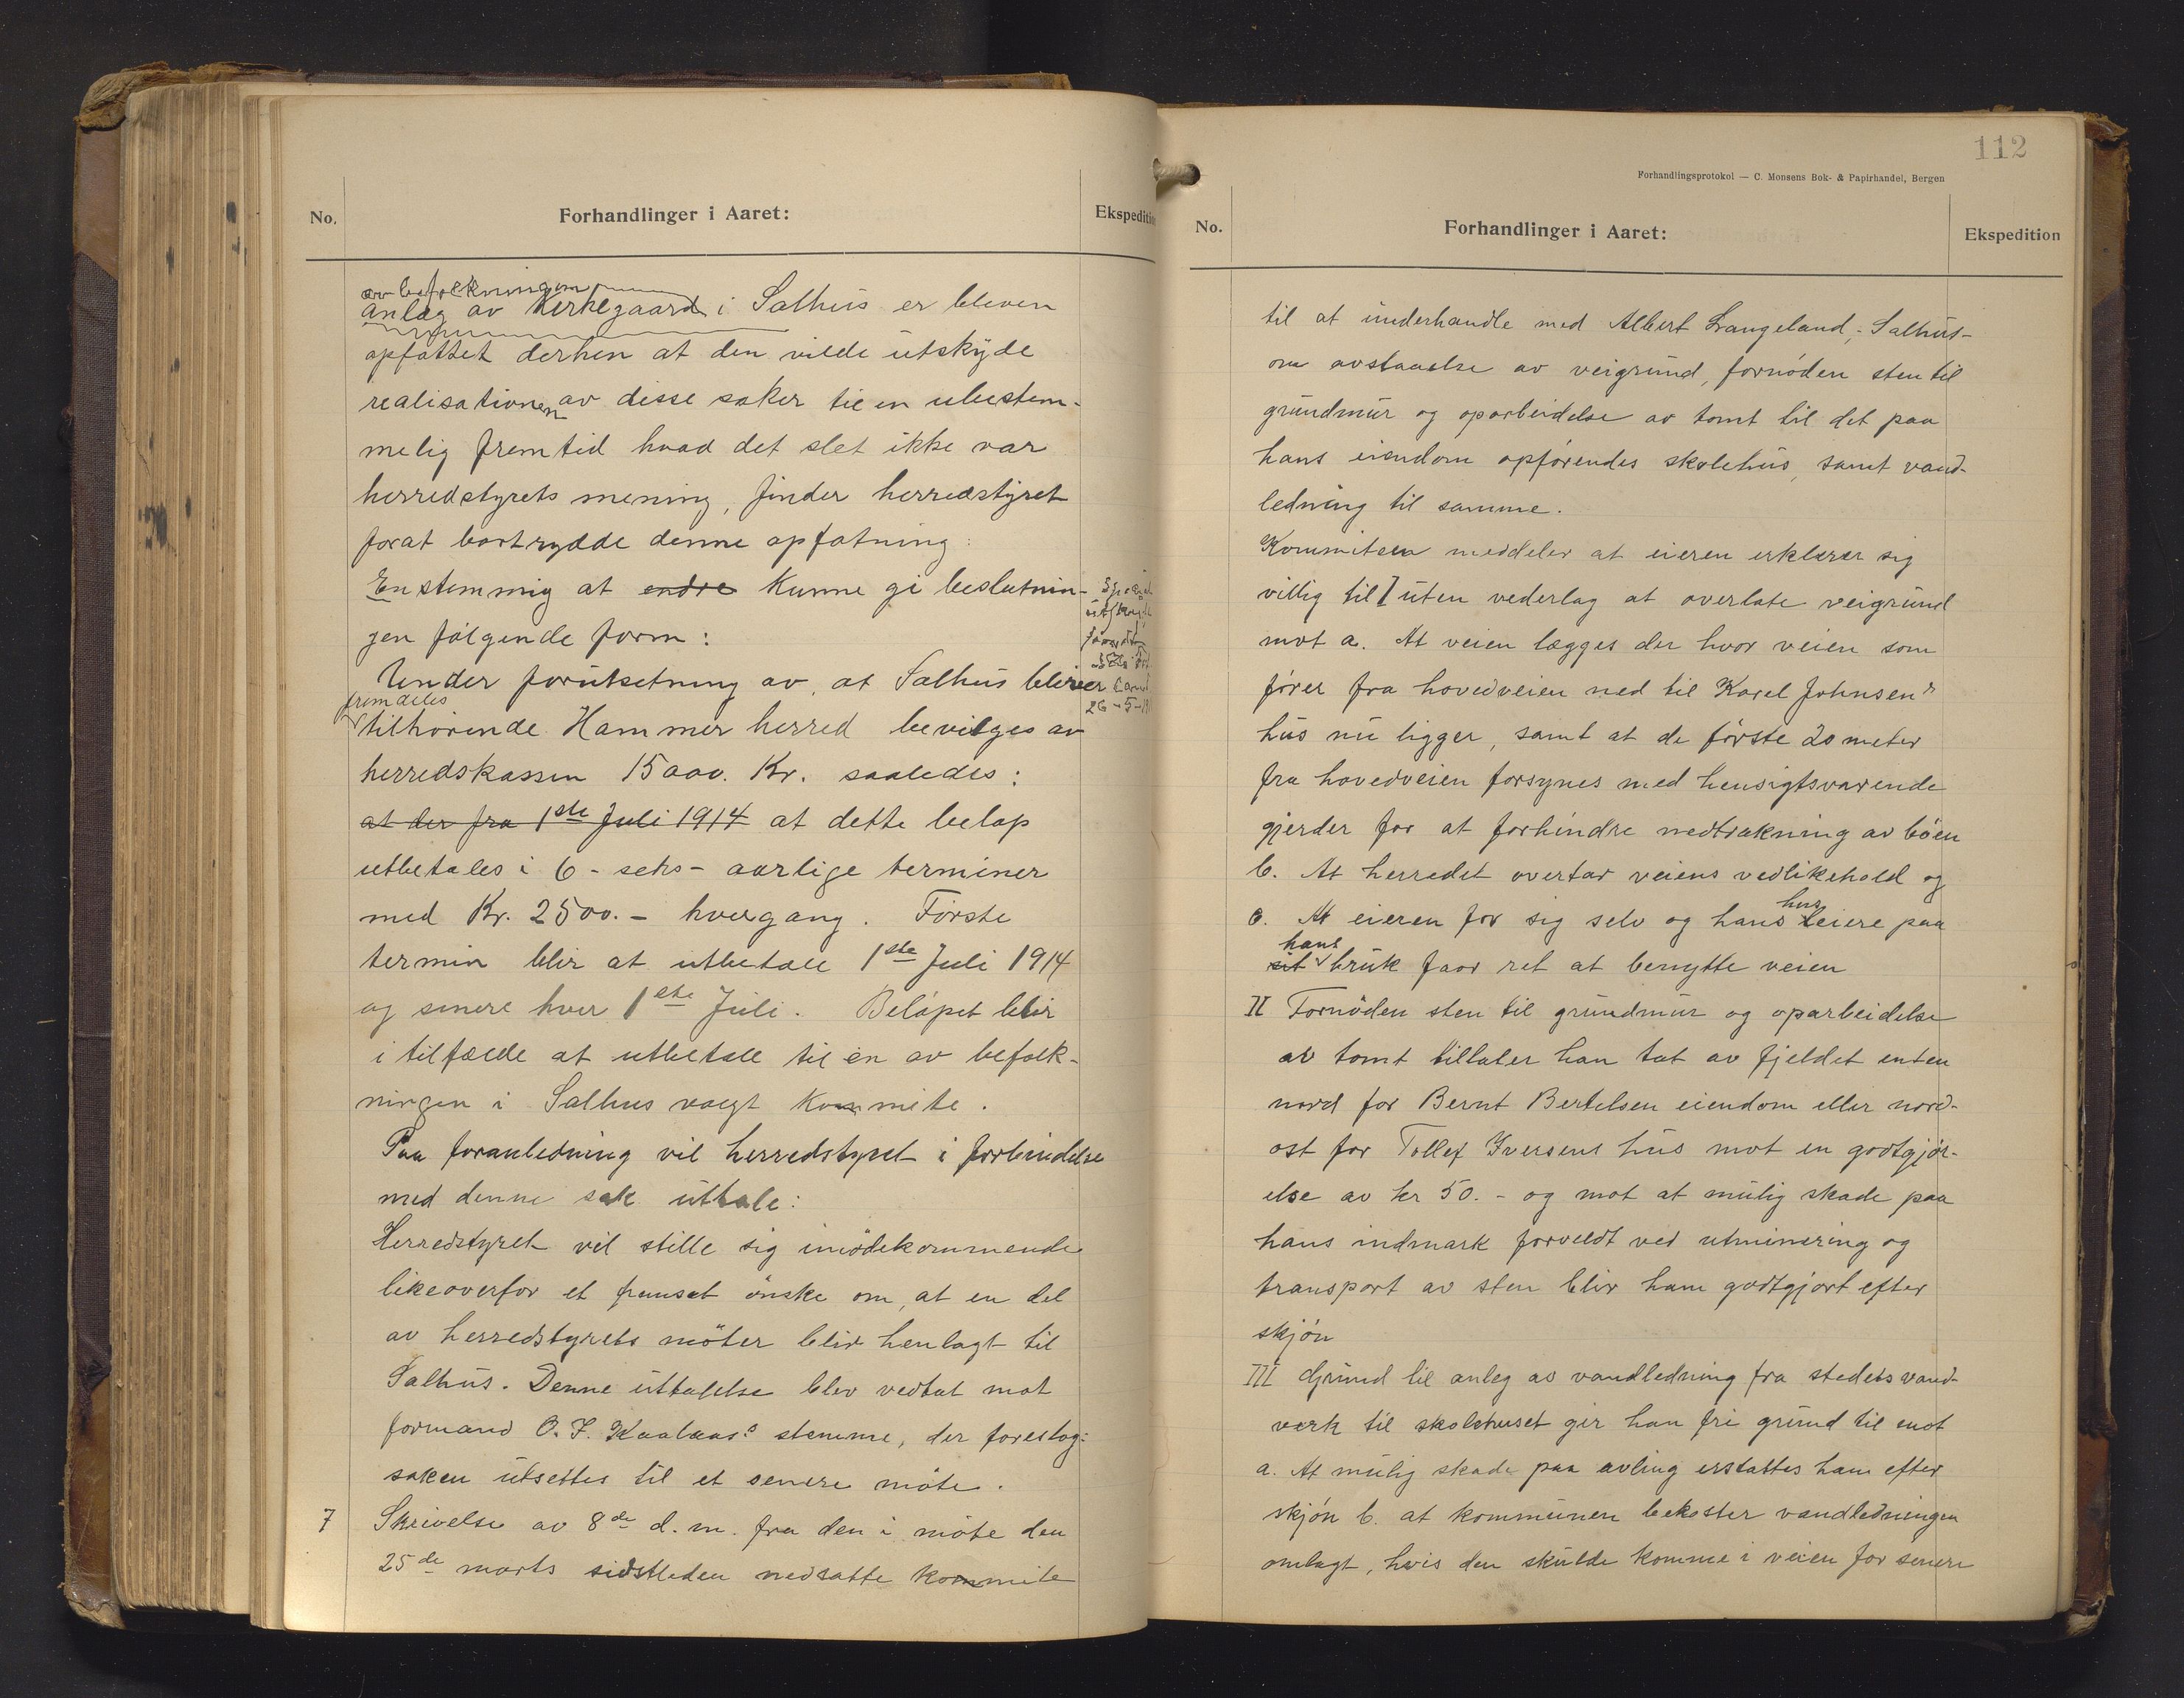 No.
Forhandlinger i Aaret:
Ekspedition
av befolkningen
anlæg av Kirkegaard i Salhus er bleven
opfattet derhen at den vilde utskyde
realisationen av disse saker til en ubestem-
melig fremtid hvad det slet ikke var
herredstyrets mening, finder herredstyret
forat bortrydde denne opfatning:
Enstemmig at endre kunne gi beslutnin-
gen følgende form:
Under forutsetning av, at Salhus bliver
fremdeles
tilhørende Hammer herred bevilges av
herredskassen 15000. Kr. saaledes:
at der fra 1ste Juli 1914 at dette beløp
utbetales i 6 - seks - aarlige terminer
med Kr. 2500.- hvergang. Første
termin blir at utbetale 1ste Juli 1914
og senere hver 1ste Juli. Beløpet blir
i tilfælde at utbetale til en av befolk-
ningen i Salhus valgt kommite.
Paa foranledning vil herredstyret i forbindelse
med denne sak uttale:
Herredstyret vil stille sig imødekommende
likeoverfor et fremsat ønske om, at en del
av herredstyrets møter blir henlagt til
Salhus. Denne uttalelse blev vedtat mot
formand O. J. Kaalaas's stemme, der foreslog:
saken utsettes til et senere møte.
7 Skrivelse av 8de d.m. fra den i møte den
25de marts sidstleden nedsatte kommite
26-5-
112
Forhandlingsprotokol — C. Monsens Bok- & Papirhandel, Bergen
No.
Forhandlinger i Aaret:
Ekspedition
til at underhandle med Albert Langeland,- Salhus-
om avstaaelse av veigrund, fornøden sten til
grundmur og oparbeidelse av tomt til det paa
hans eiendom opførendes skolehus, samt vand-
ledning til samme.
Kommiteen meddeler at eieren erklærer sig
villig til I uten vederlag at overlate veigrund
mot a. At veien lægges der hvor veien som
fører fra hovedveien ned til Karel Johnsens
hus nu ligger, samt at de første 20 meter
fra hovedveien forsynes med hensigtsvarende
gjerder for at forhindre nedtrakning av bøen
b. At herredet overtar veiens vedlikehold og
hus
c. At eieren for sig selv og hans leiere paa
hans
sit bruk faar ret at benytte veien
II Fornøden sten til grundmur og oparbeidelse
av tomt tillater han tat av fjeldet enten
nord for Bernt Bertelsen eiendom eller nord-
ost for Tollef Iversens hus mot en godtgjør-
else av kr 50.- og mot at mulig skade paa
hans indmark forvoldt ved utminering og
transport av sten blir ham godtgjort efter
skjøn
III Grund til anleg av vandledning fra stedets vand-
verk til skolehuset gir han fri grund til mot
a. At mulig skade paa avling erstattes ham efter
skjøn b. at kommunen bekoster vandledningen
omlagt, hvis den skulde komme i veien for senere